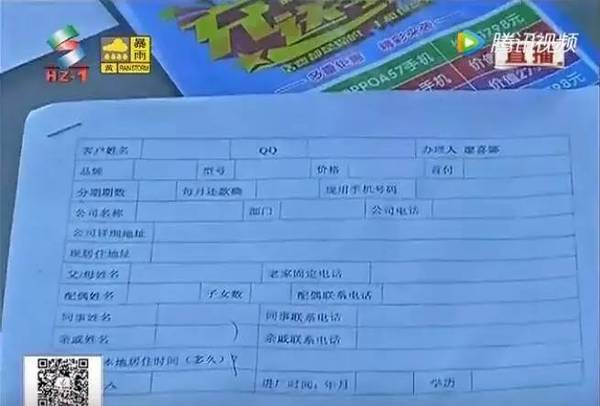 HZ-1
暴雨
黄 RAINSTORM
腾讯视频
直播
多重优惠 精彩
1798元
OPPOA57手机 价值27
客户姓名 QQ 办理人
品牌 型号 价格 首付
分期期数 每月还款额 现用手机号码
公司名称 部门 公司电话
公司详细地址
现居住地址
父/母姓名 老家固定电话
配偶姓名 子女数 配偶联系电话
同事姓名 同事联系电话
亲戚姓名 亲戚联系电话
本地居住时间（多久）
人 进厂时间：年月 学历